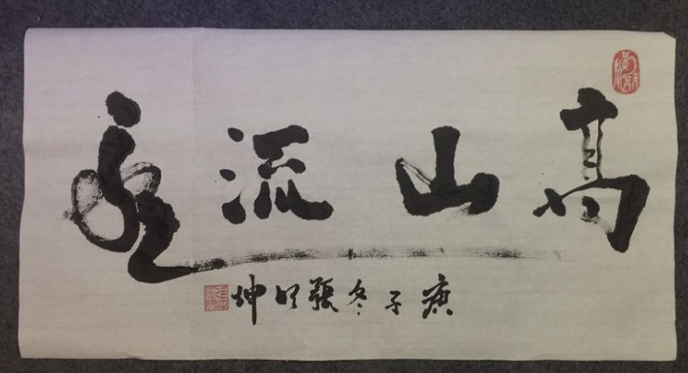 高山流水
庚子冬張坤